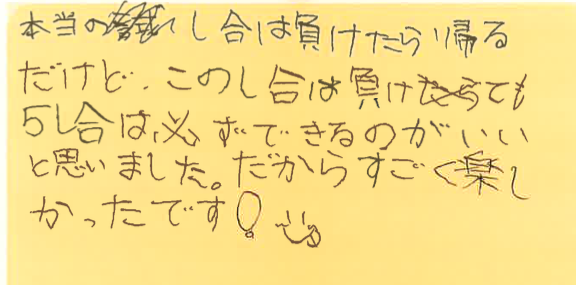 本当のし合は負けたら帰る
だけど、このし合は負けても
5し合は必ずできるのがいい
と思いました。だからすごく楽し
かったです!